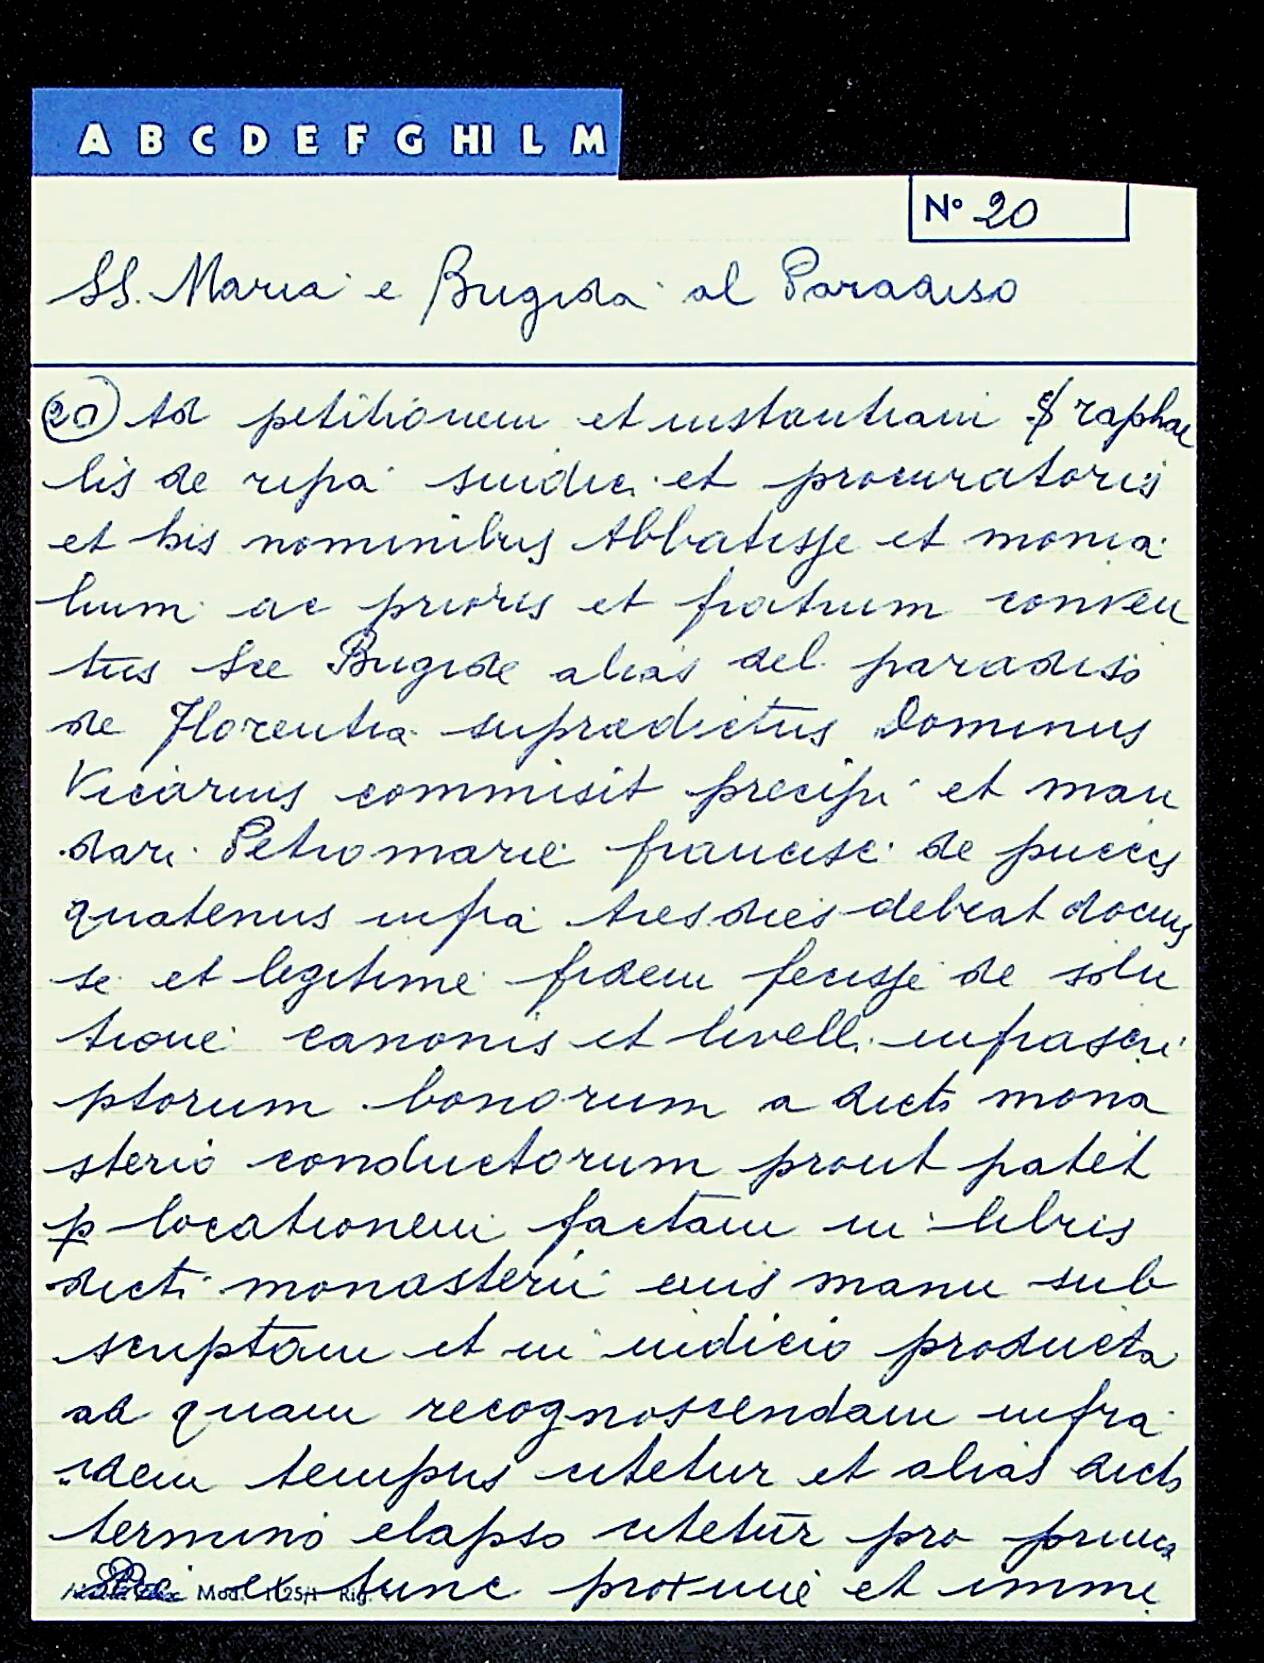 A B C D E F G HI L M
N° 20
SS. Maria e Brigida al Paradiso
20) Ad petitionem et instantiam S raphae
lis de ripa sindici et procuratoris
et his nominibus Abbatisse et monia
lium ac prioris et fratrum conven
tus Sce Brigide alias del paradiso
de Florentia supradictus Dominus
Vicarius commisit precipi et man
dari Petromarie francisci de puccis
quatenus infra tres dies debeat docuis
se et legitime fidem fecisse de solu
tione canonis et livelli infrascri
ptorum bonorum a dicto mona
sterio conductorum prout patet
p locationem factam in libris
dicti monasterii eius manu sub
scriptam et in iudicio producta
ad quam recognoscendam infra
idem tempus citetur et alias dicto
termino elapso citetur pro prima
Mod. 1125/1 Rig.
ex tunc proxime et imme